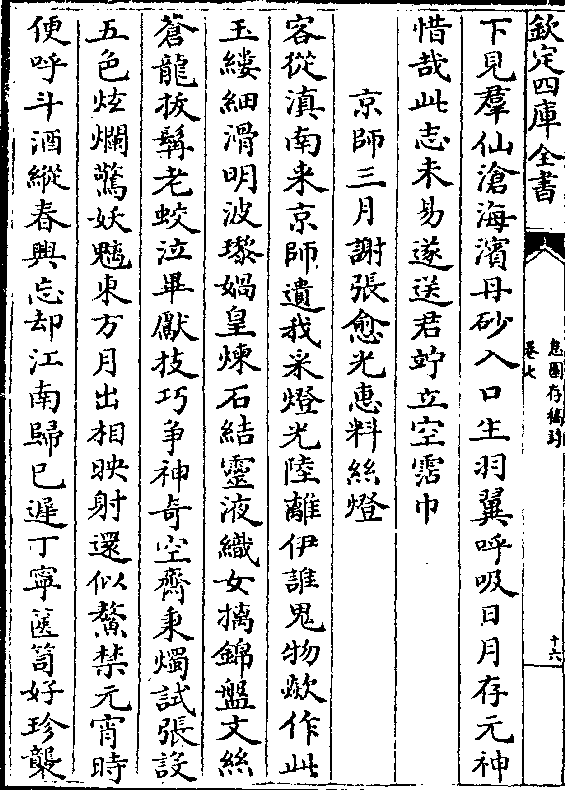 欽定四庫全書
卷七
十六
下見羣仙滄海濱丹砂入口生羽翼呼吸日月存元神
惜哉此志未易遂送君竚立空霑巾
京師三月謝張愈光惠料絲燈
客從滇南來京師遺我采燈光陸離伊誰鬼物歘作此
玉縷細滑明波瓈媧皇煉石結靈液織女摛錦盤文絲
蒼龍拔髯老蛟泣畢獻技巧爭神奇空齋秉燭試張設
五色炫爛驚妖魑東方月出相映射還似鰲禁元宵時
便呼斗酒縱春興忘却江南歸已遲丁寧篋笥好珍襲